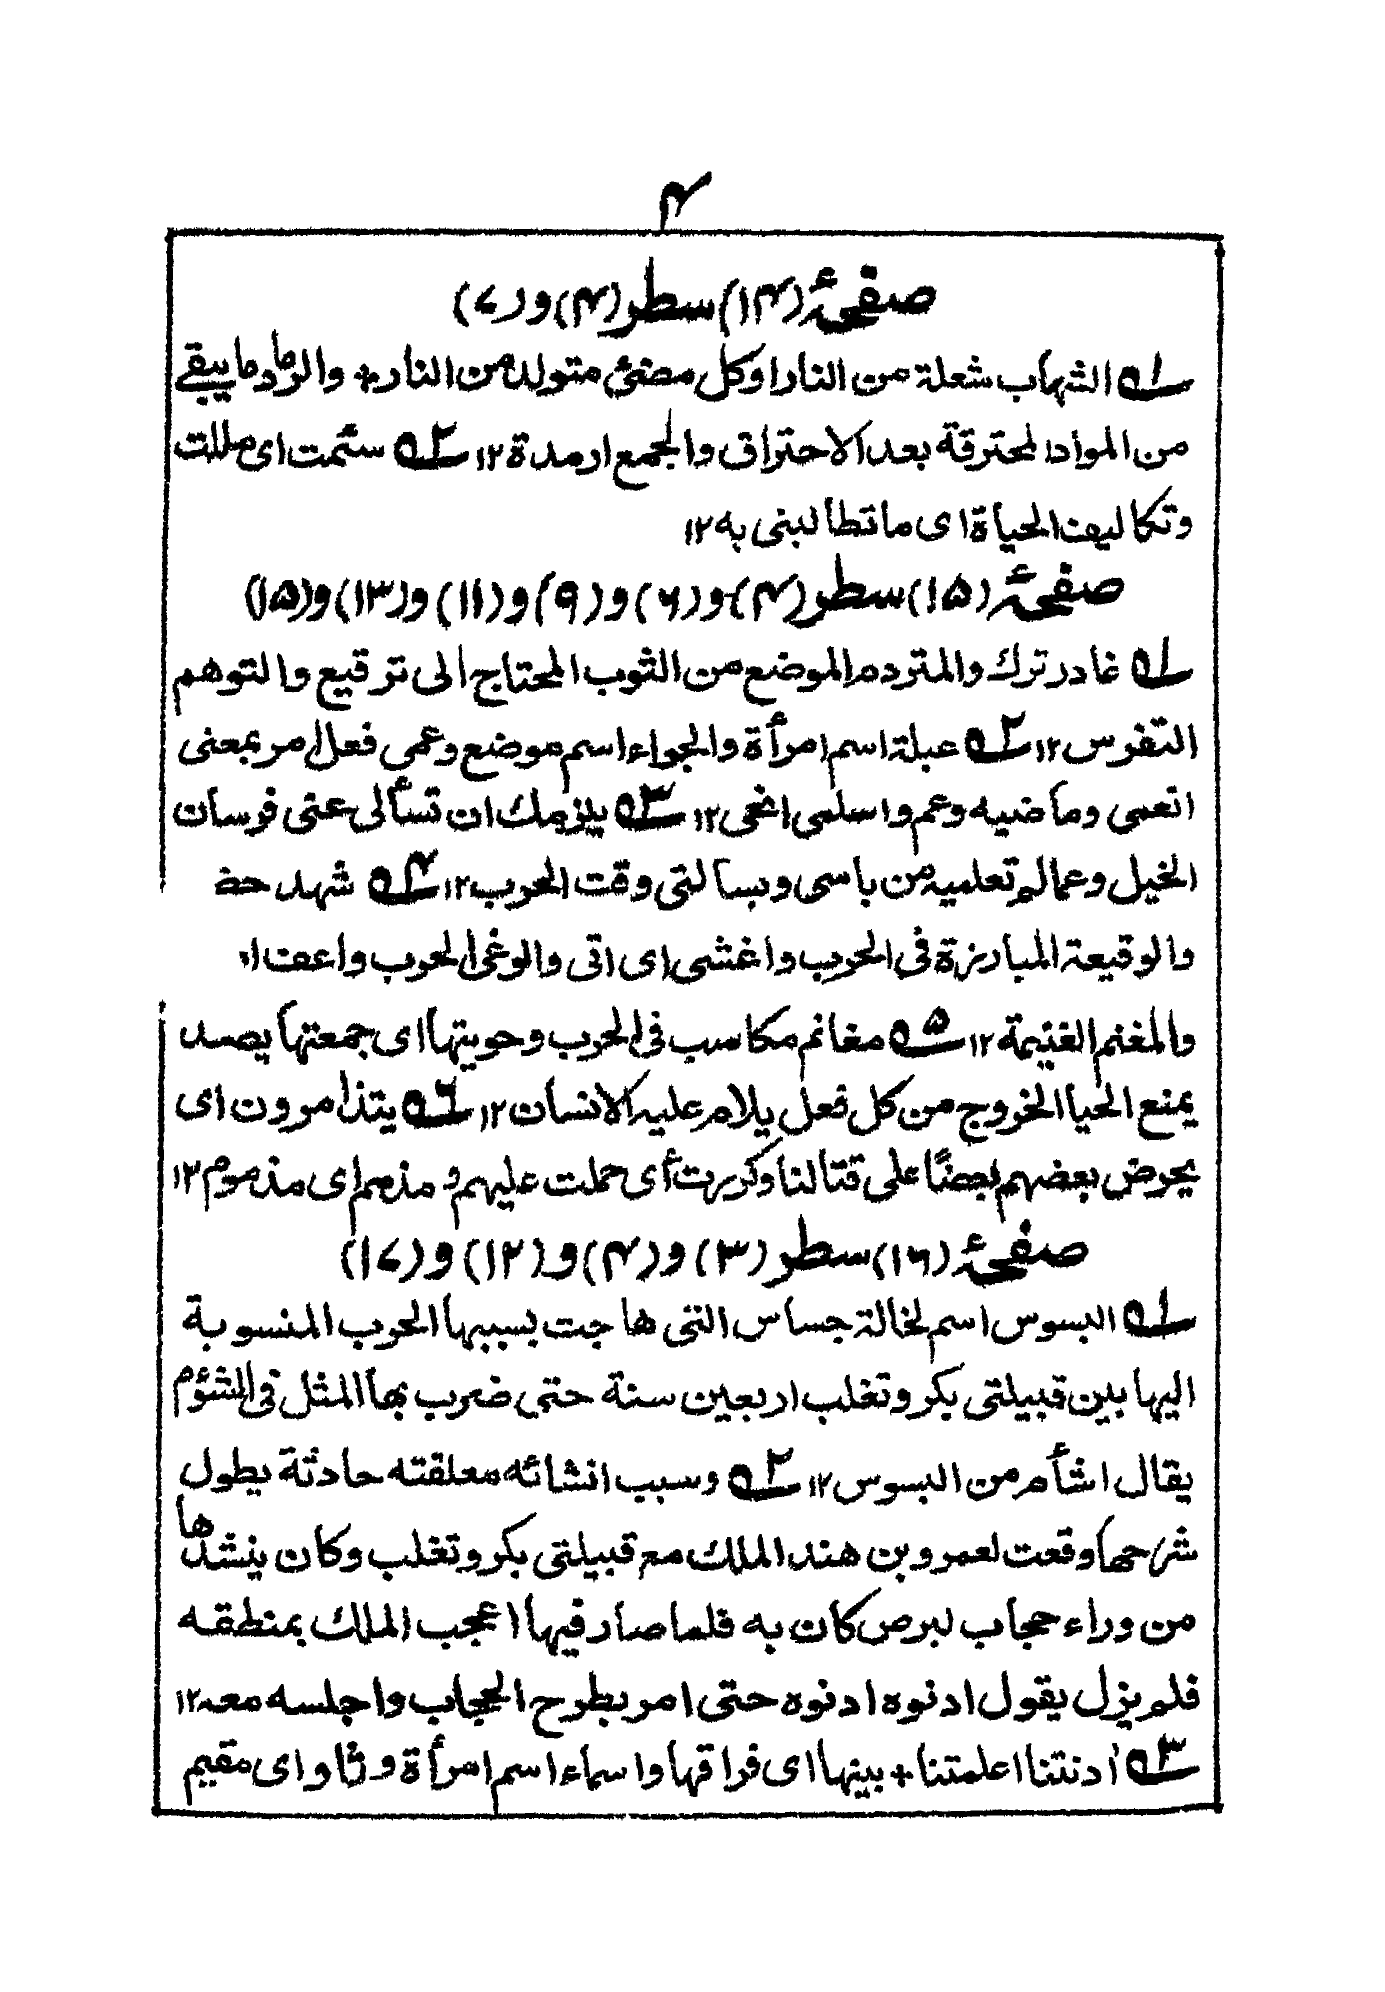 ۴
صفحۂ (۱۴) سطر (۴) و (۷)
۱ه الشهاب شعلة من النار اوكل مضئ متولد من النار + والرماد ما يبقے
من المواد المحترقة بعد الاحتراق والجمع ارمدة ۱۲ ۲ه سئمت اى مللت
وتكاليف الحياة اى ما تطالبنى به ۱۲
صفحۂ (۱۵) سطر (۴) و (۶) و (۹) و (۱۱) و (۱۳) و (۱۵)
۱ه غادر ترك والمتردم الموضع من الثوب المحتاج الى ترقيع والتوهم
التفرس ۱۲ ۲ه عبلة اسم امرأة والجواء اسم موضع وعمى فعل امر بمعنى
انعمى وماضيه وعم واسلمى انجى ۱۲ ۳ه يلزمك ان تسألى عنى فرسان
الخيل وعما لم تعلميه من باسى وبسالتى وقت الحرب ۱۲ ۴ه شهد حضـ
والوقيعة المبارزة فى الحرب واغشى اى اتى والوغى الحرب واعف ا
والمغنم الغنيمة ۱۲ ۵ه مغانم مكاسب فى الحرب وحويتها اى جمعتها يصد
يمنع الحيا الخروج من كل فعل يلام عليه الانسان ۱۲ ۶ه يتذامرون اى
يحرض بعضهم بعضًا على قتالنا وكررت أى حملت عليهم و مذمم اى مذموم ۱۲
صفحۂ (۱۶) سطر (۳) و (۴) و (۱۲) و (۱۷)
۱ه البسوس اسم لخالة جساس التى هاجت بسببها الحرب المنسوبة
اليها بين قبيلتى بكر و تغلب اربعين سنة حتى ضرب بها المثل فى الشؤم
يقال اشأم من البسوس ۱۲ ۲ه وسبب انشائه معلقته حادثة يطول
شرحها وقعت لعمرو بن هند الملك مع قبيلتى بكر و تغلب وكان ينشدها
من وراء حجاب لبرص كان به فلما صار فيها اعجب الملك بمنطقه
فلم يزل يقول ادنوه ادنوه حتى امر بطرح الحجاب واجلسه معه ۱۲
۳ه اٰدنتنا اعلمتنا + بينها اى فراقها واسماء اسم امرأة و ثاو اى مقيم